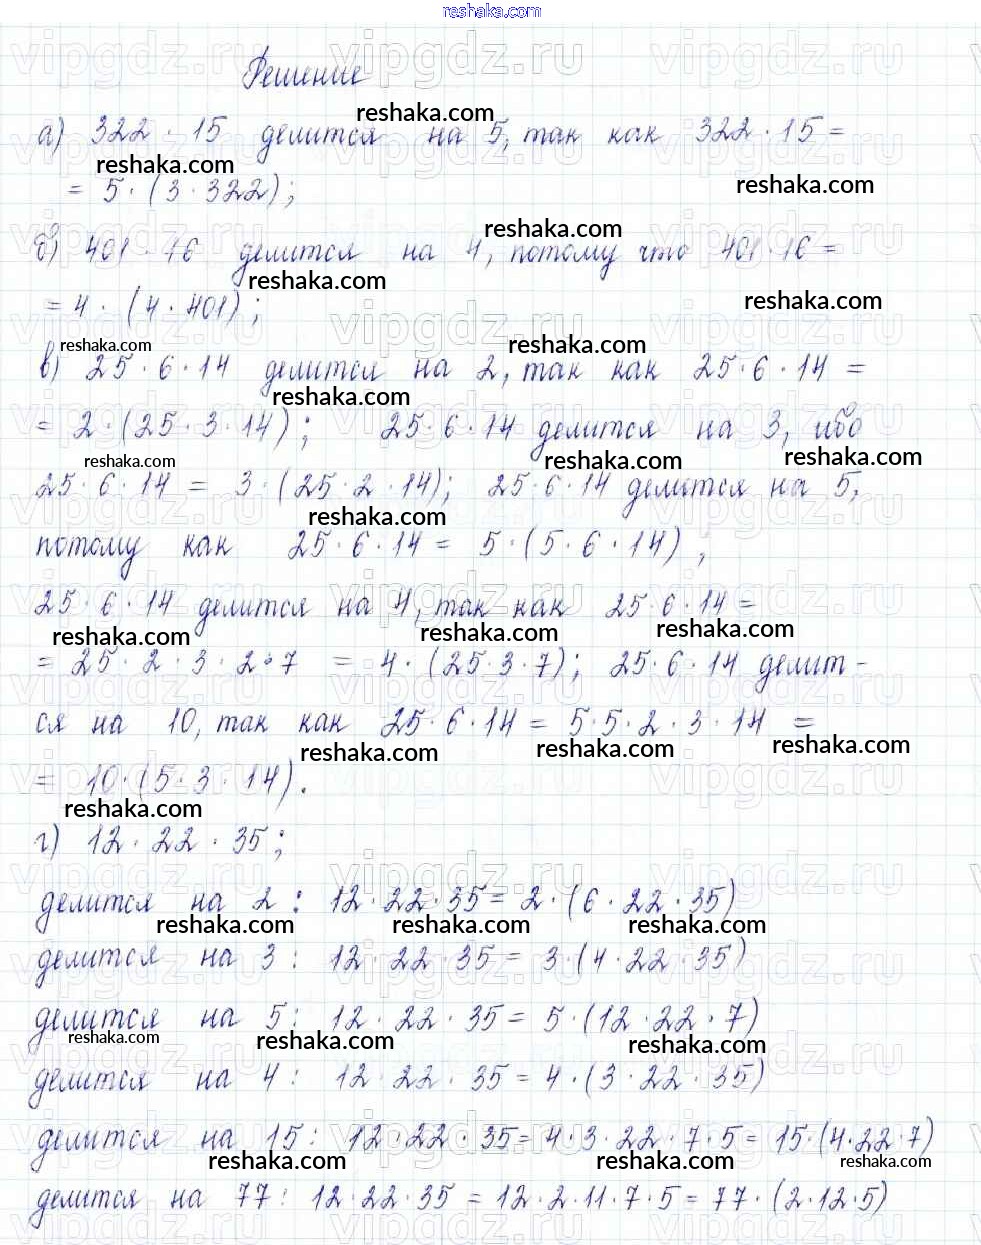 reshaka.com
Решение
а) 322 · 15 делится на 5, так как 322 · 15 =
= 5 · (3 · 322);
б) 401 · 16 делится на 4, потому что 401 · 16 =
= 4 · (4 · 401);
в) 25 · 6 · 14 делится на 2, так как 25 · 6 · 14 =
= 2 · (25 · 3 · 14); 25 · 6 · 14 делится на 3, ибо
25 · 6 · 14 = 3 · (25 · 2 · 14); 25 · 6 · 14 делится на 5,
потому как 25 · 6 · 14 = 5 · (5 · 6 · 14);
25 · 6 · 14 делится на 4, так как 25 · 6 · 14 =
= 25 · 2 · 3 · 2 · 7 = 4 · (25 · 3 · 7); 25 · 6 · 14 делит-
ся на 10, так как 25 · 6 · 14 = 5 · 5 · 2 · 3 · 14 =
= 10 · (5 · 3 · 14).
г) 12 · 22 · 35;
делится на 2 : 12 · 22 · 35 = 2 · (6 · 22 · 35)
делится на 3 : 12 · 22 · 35 = 3 · (4 · 22 · 35)
делится на 5 : 12 · 22 · 35 = 5 · (12 · 22 · 7)
делится на 4 : 12 · 22 · 35 = 4 · (3 · 22 · 35)
делится на 15 : 12 · 22 · 35 = 4 · 3 · 22 · 7 · 5 = 15 · (4 · 22 · 7)
делится на 77 : 12 · 22 · 35 = 12 · 2 · 11 · 7 · 5 = 77 · (2 · 12 · 5)